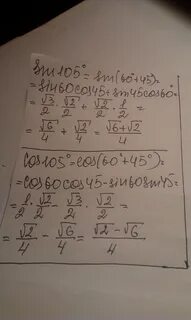 sin105°=sin(60°+45°)=
=sin60cos45+sin45cos60=
=√3/2·√2/2+√2/2·1/2=
=√6/4+√2/4=(√6+√2)/4
cos105°=cos(60°+45°)=
=cos60cos45-sin60sin45=
=1/2·√2/2-√3/2·√2/2=
=√2/4-√6/4=(√2-√6)/4